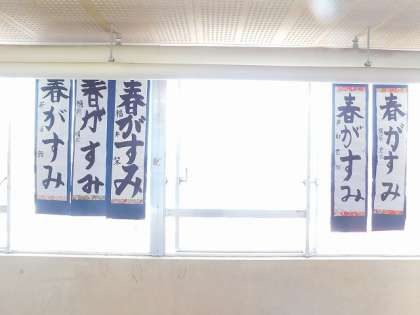 春がすみ
春がすみ
春がすみ
春がすみ
春がすみ